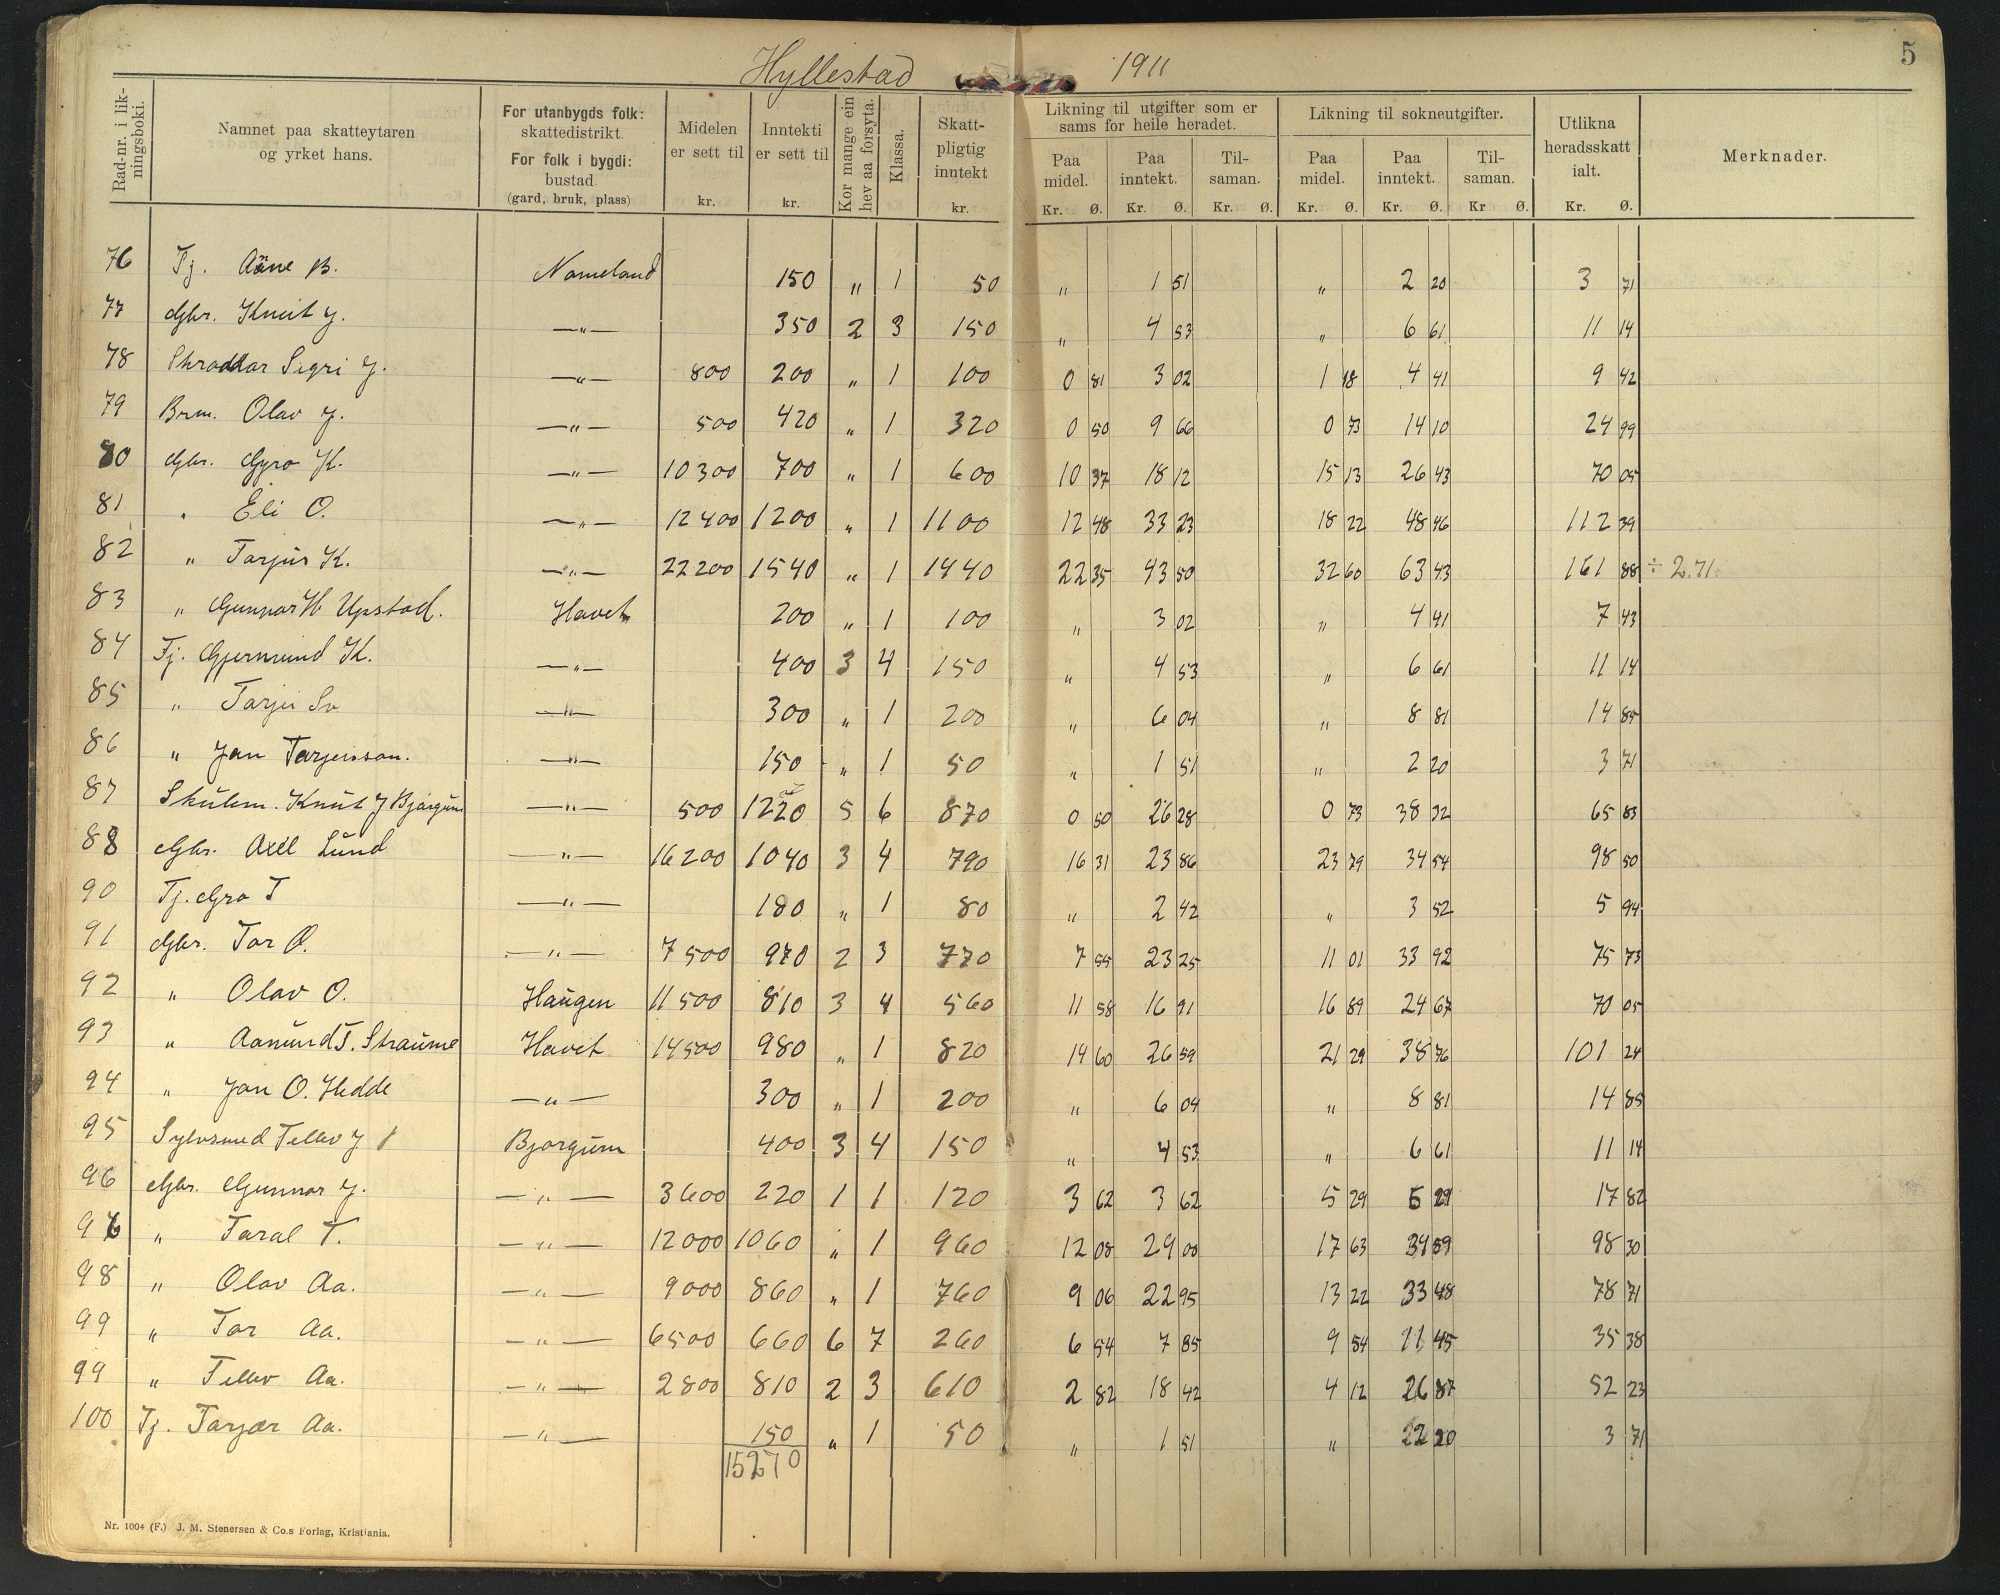 Hyllestad 1911 5
Rad-nr. i likningsboki. Namnet paa skatteytaren og yrket hans. For utanbygds folk: skattedistrikt. For folk i bygdi: bustad. (gard, bruk, plass) Midelen er sett til kr. Inntekti er sett til kr. Kor mange ein hev aa forsyta. Klassa. Skattpligtig inntekt kr. Likning til utgifter som er sams for heile heradet. Paa midel. Kr. Ø. Paa inntekt. Kr. Ø. Tilsaman. Kr. Ø. Likning til sokneutgifter. Paa midel. Kr. Ø. Paa inntekt. Kr. Ø. Tilsaman. Kr Ø. Utlikna heradsskatt ialt. Kr. Ø. Merknader.
76 Tj. Aane B. Nomeland 150 " 1 50 " 1 51 " 2 20 3 71
77 Gbr. Knut J. —"— 350 2 3 150 " 4 53 " 6 61 11 14
78 Skraddar Sigri J. —"— 800 200 " 1 100 0 81 3 02 1 18 4 41 9 42
79 Brm. Olav J. —"— 500 420 " 1 320 0 50 9 66 0 73 14 10 24 99
80 Gbr. Gyro K. —"— 10300 700 " 1 600 10 37 18 12 15 13 26 43 70 05
81 " Eli O. —"— 12400 1200 " 1 1100 12 48 33 23 18 22 48 46 112 39
82 " Tarjus K. —"— 22200 1540 " 1 1440 22 35 43 50 32 60 63 43 161 88 ÷ 2.71
83 " Gunnar H Upstad. Havet 200 " 1 100 " 3 02 " 4 41 7 43
84 Tj. Gjermund K. —"— 400 3 4 150 " 4 53 " 6 61 11 14
85 " Tarjei Sv. —"— 300 " 1 200 " 6 04 " 8 81 14 85
86 " Jon Tarjeisson. —"— 150 " 1 50 " 1 51 " 2 20 3 71
87 Skulem. Knut J Bjørgum —"— 500 1220 5 6 870 0 50 26 28 0 73 38 32 65 83
88 Gbr. Axel Lund —"— 16200 1040 3 4 790 16 31 23 86 23 79 34 54 98 50
90 Tj. Gro T —"— 180 " 1 80 " 2 42 " 3 52 5 94
91 Gbr. Tor O. —"— 7500 970 2 3 770 7 55 23 25 11 01 33 92 75 73
92 " Olav O. Haugen 11500 810 3 4 560 11 58 16 91 16 89 24 67 70 05
93 " Aamund T. Straume Havet 14500 980 " 1 820 14 60 26 59 21 29 38 76 101 24
94 " Jon O. Hedde —"— 300 " 1 200 " 6 04 " 8 81 14 85
95 Sylvsmed Tellev J Bjorgum 400 3 4 150 " 4 53 " 6 61 11 14
96 Gbr. Gunnar J. —"— 3600 220 1 1 120 3 62 3 62 5 29 5 29 17 82
97 " Taral T. —"— 12000 1060 " 1 960 12 08 29 00 17 63 39 59 98 30
98 " Olav Aa. —"— 9000 860 " 1 760 9 06 22 95 13 22 33 48 78 71
99 " Tor Aa. —"— 6500 660 6 7 260 6 54 7 85 9 54 11 45 35 38
99 " Tellev Aa. —"— 2800 810 2 3 610 2 82 18 42 4 12 26 87 52 23
100 Tj. Tarjær Aa. —"— 150 " 1 50 " 1 51 " 2 20 3 71
15270
Nr. 1004 (F.) J. M. Stenersen & Co.s Forlag, Kristiania.